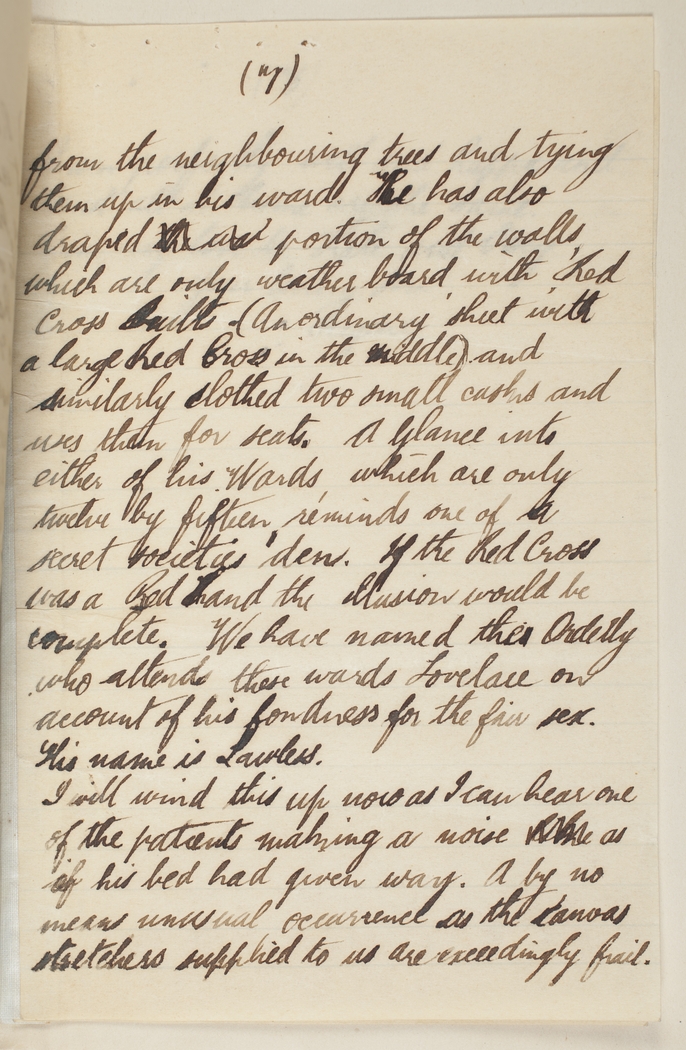 from the neighbouring trees and tying
them up in his ward. He has also
draped portion of the walls
which are only weather board with Red
Cross Quilts (An ordinary sheet with
a large Red Cross in the middle) and
similarly clothed two small casks and
uses them for seats. A Glance into
either of his Wards which are only
twelve by fifteen reminds one of a
secret societies den. If the Red Cross
was a Red Hand the illusion would be
complete. We have named the Orderly
who attends these wards Lovelace on
account of his fondness for the fair sex.
His name is Lawless.
I will wind this up now as I can hear one
of the patients making a noise as
if his bed had given way. A by no
means unusual occurrence as the canvas
stretchers supplied to us are exceedingly frail.